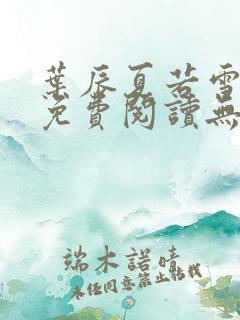 葉辰夏若雪
免費閱讀無
端木諾晴
未經同意禁止轉載